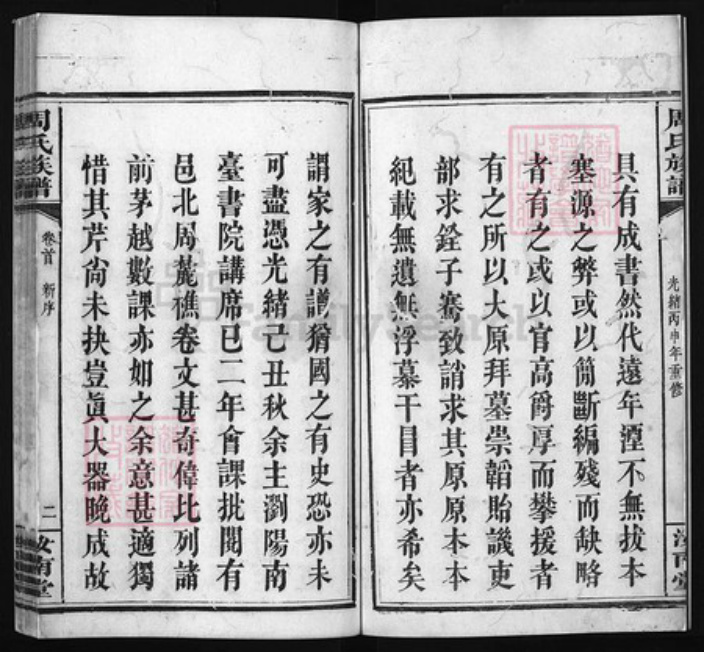 周氏族譜
光緒丙申年重修
汝南堂
具有成書然代遠年湮不無拔本
塞源之弊或以簡斷編殘而缺略
者有之或以官高爵厚而攀援者
有之所以大原拜墓崇韜貽譏吏
部求銓子騫致誚求其原原本本
紀載無遺無浮慕干目者亦希矣
謂家之有譜猶國之有史恐亦未
可盡憑光緒己丑秋余主瀏陽南
臺書院講席已二年會課批閱有
邑北周麓樵卷文甚奇偉比列諸
前茅越數課亦如之余意甚適獨
惜其芹尚未抉豈真大器晚成故
周氏族譜
卷首 新序
二
汝南堂
FamilySearch